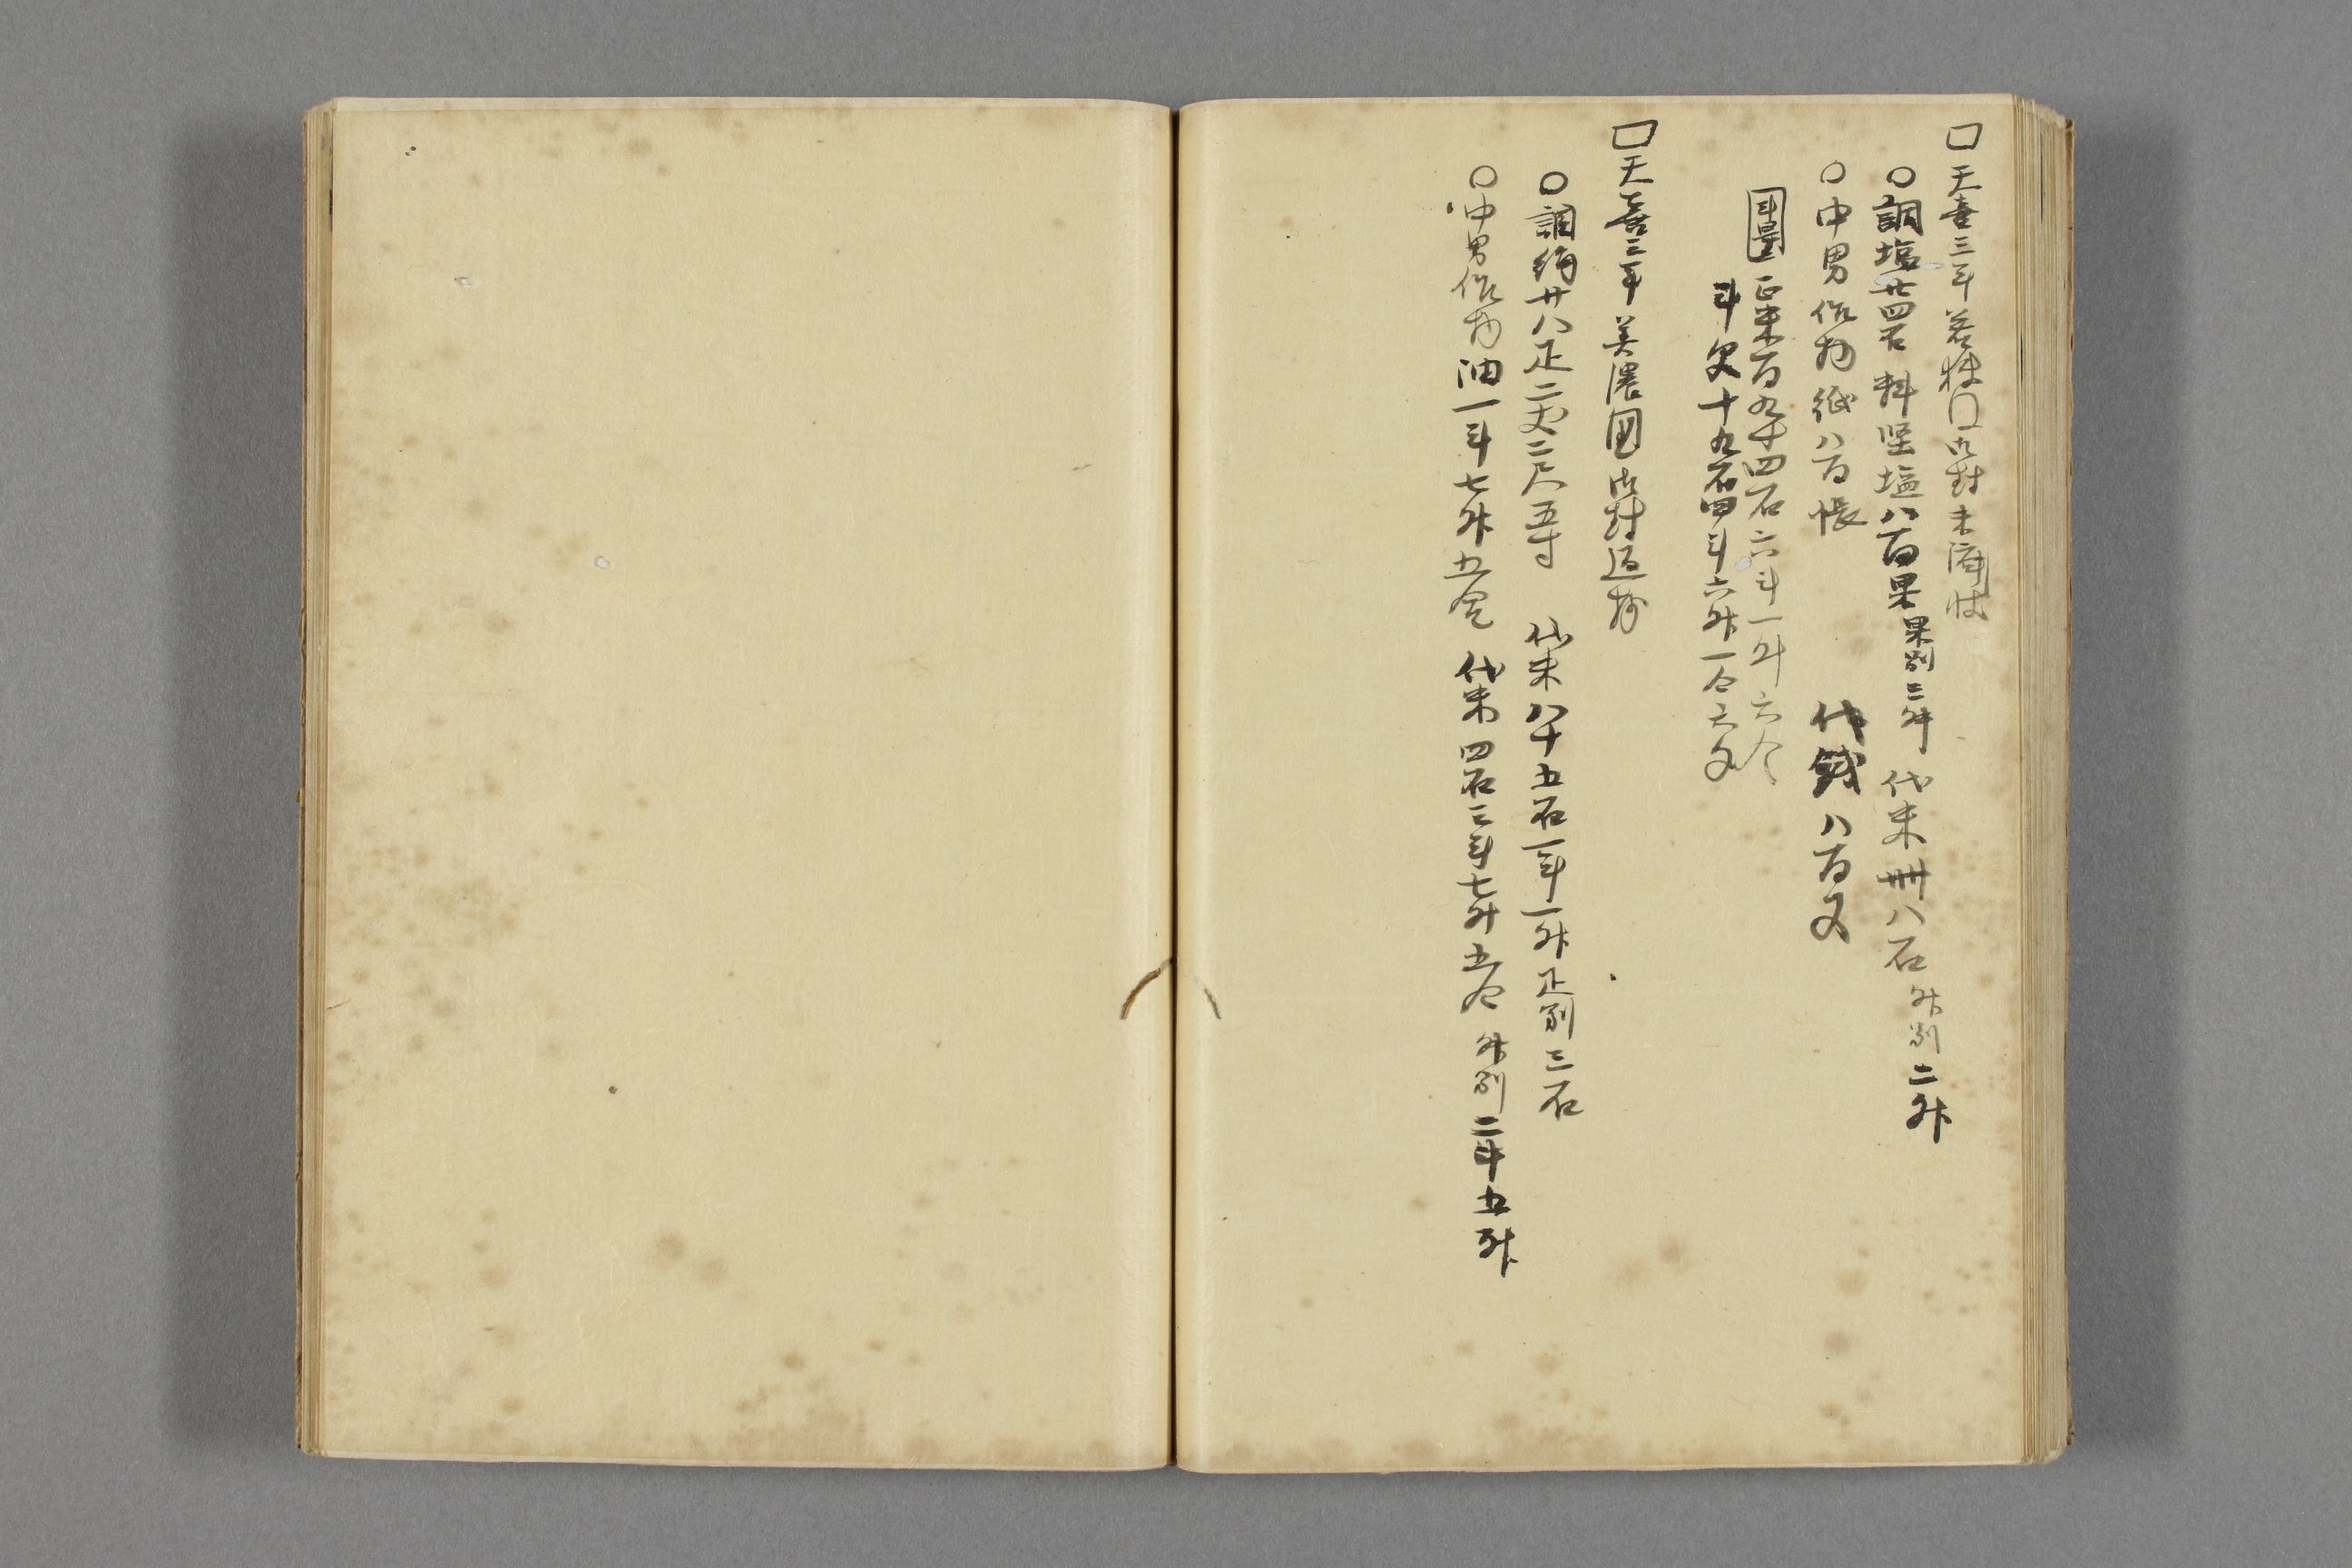 □天喜三年若狭国御封未済状
○調塩廿四石 料堅塩八百果 果別三升 代米卌八石 升別二升
○中男作物紙八百張 代銭八百文
斗量 正米百九十四石六斗一升六合
斗欠十九石四斗六升一合六夕
□天喜三年美濃国御封返抄
○調絹廿八疋二丈二尺五寸 代米八十五石一斗一升 疋別三石
○中男作物油一斗七升五合 代米四石三斗七升五合 升別二斗五升